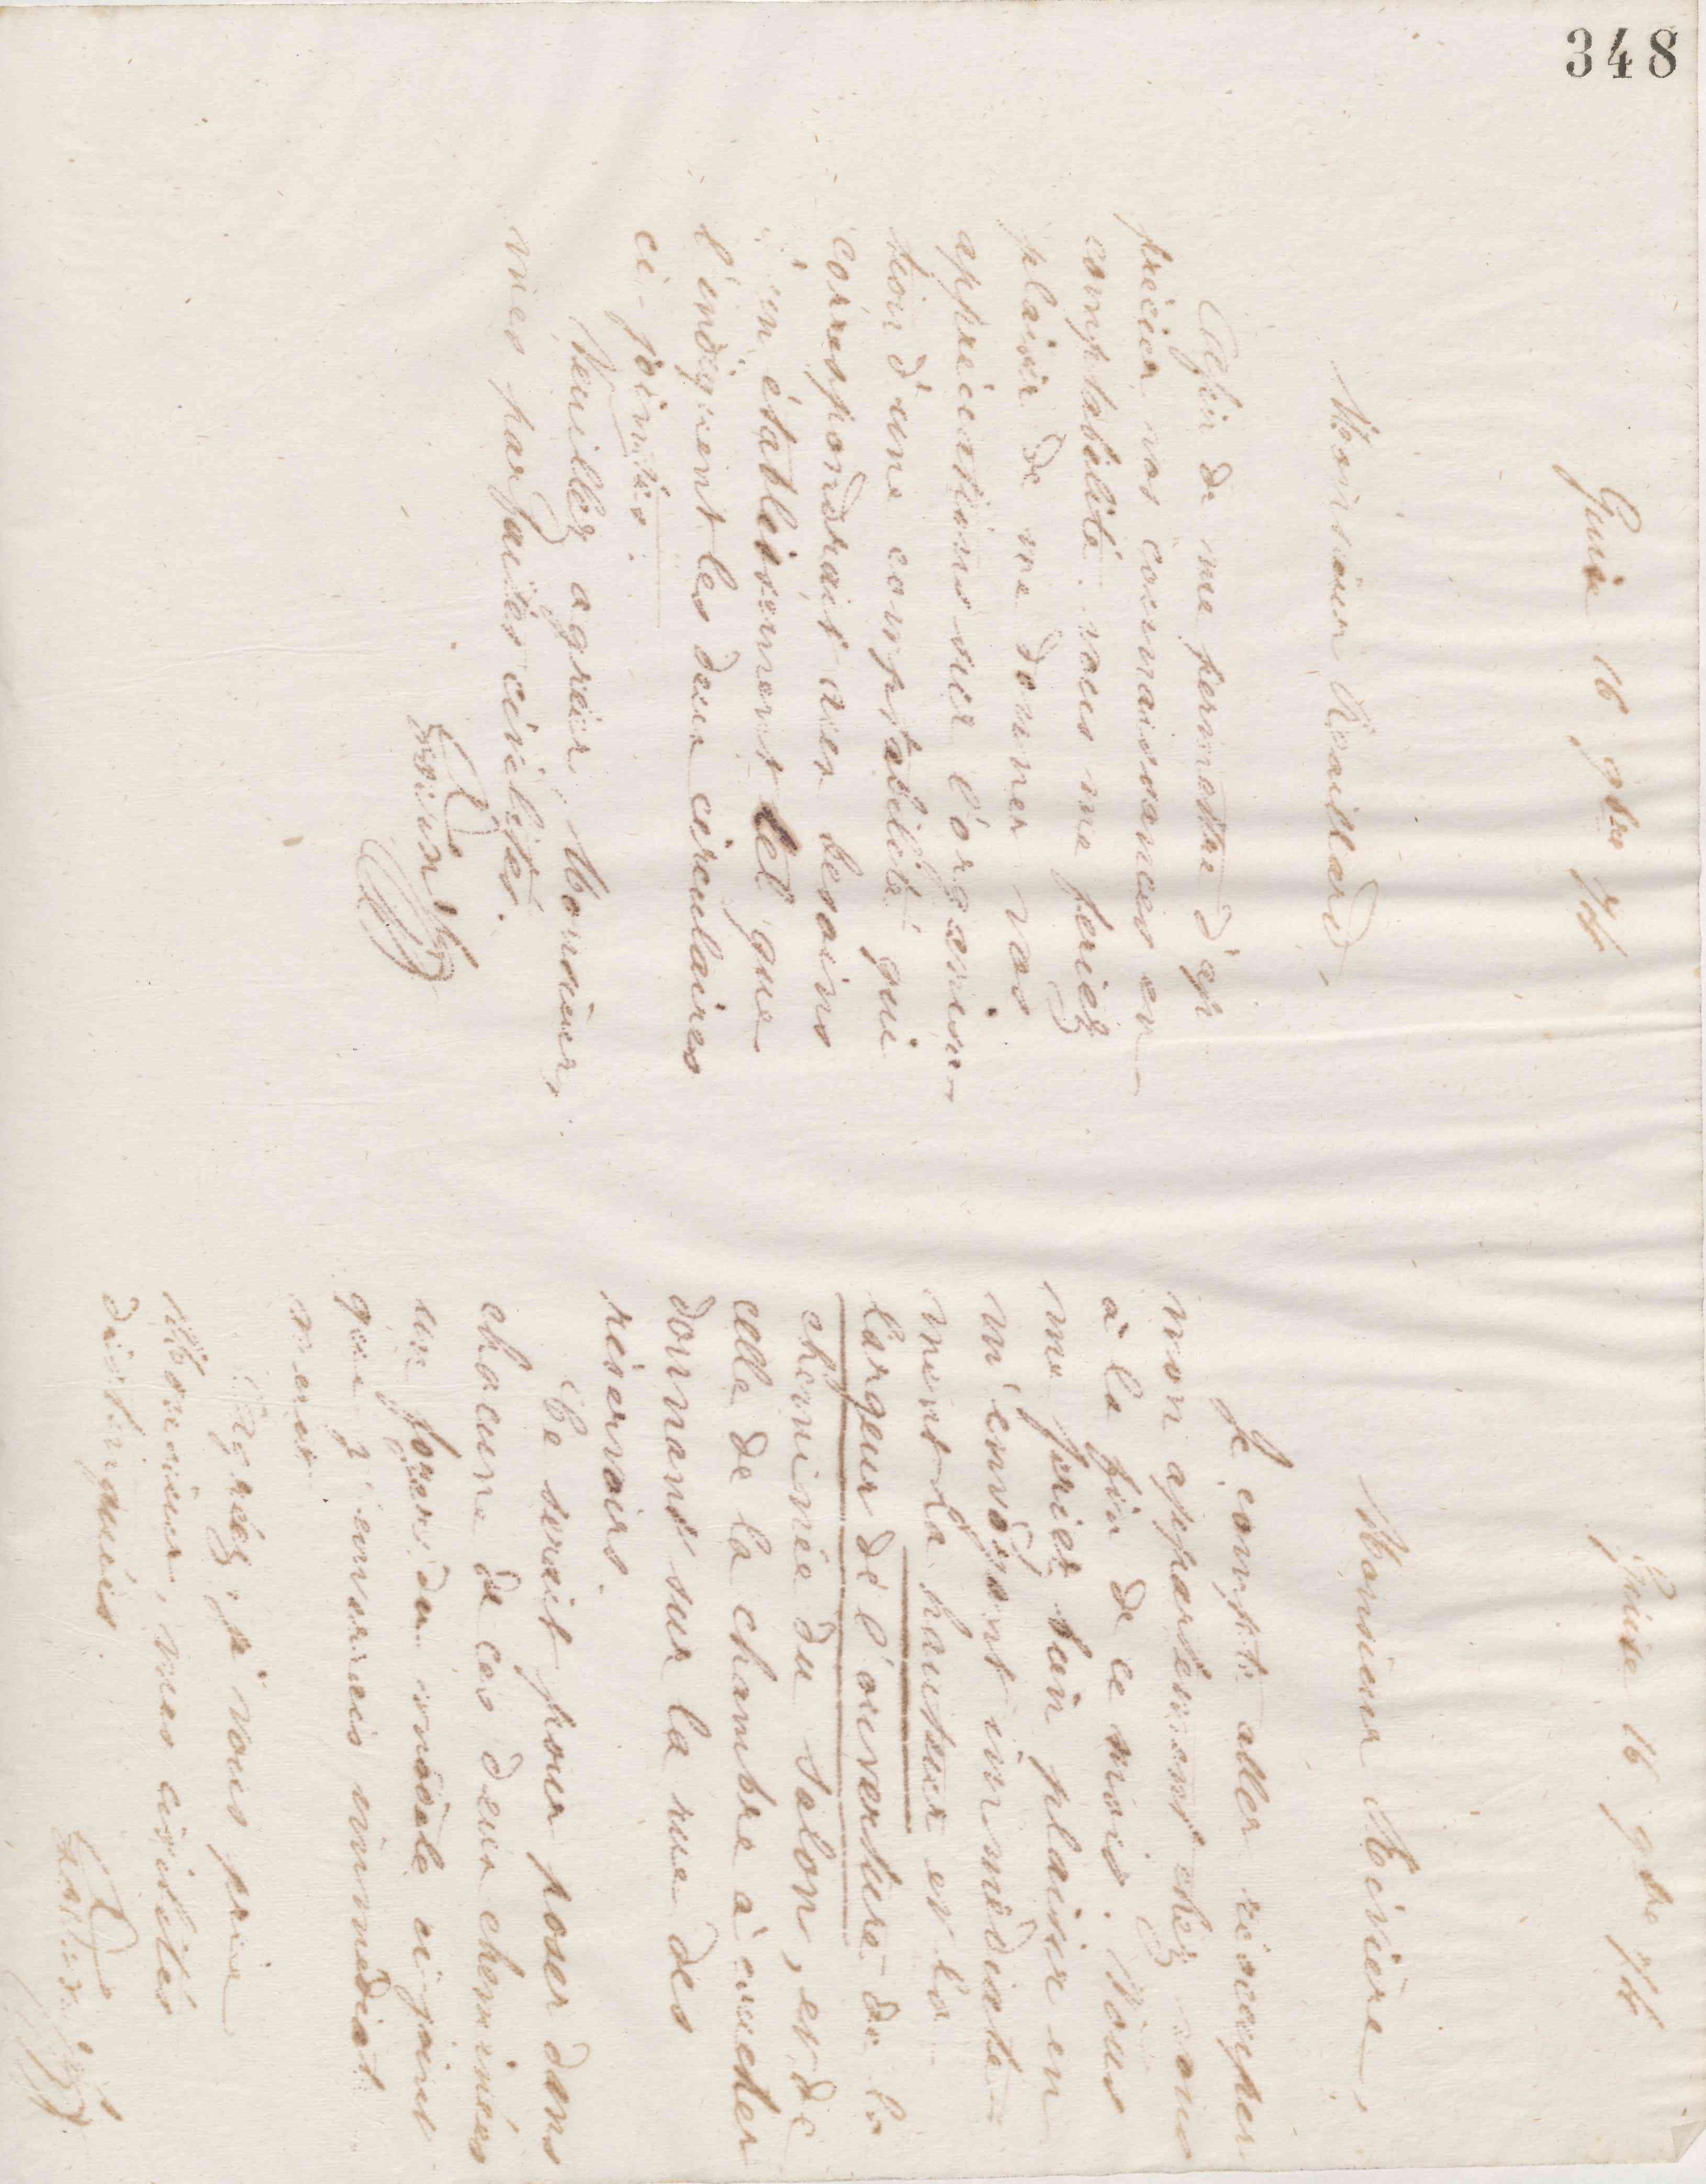 348
Guise 16 9bre 74
Monsieur Roaillard,
Afin de me permettre d'ap
précier vos connaissances en
comptabilité vous me feriez
plaisir de me donner vos
appréciations sur l'organisa-
tion d'une comptabilité qui
correspondrait aux besoins
d'un établissement tel que
l'indiquent les deux circulaires
ci-jointes.
Veuillez agréer, Monsieur,
mes parfaites civilités.
Godin
Guise 16 9bre 74
Monsieur
Je compte aller réoccuper
mon appartement chez vous
à la fin de ce mois. Vous
me feriez bien plaisir en
m'envoyant immédiate-
ment la hauteur et la
largeur de l'ouverture de la
cheminée du salon, et de
celle de la chambre à coucher
donnant sur la rue des
réservoirs.
Ce serait pour poser dans
chacune de ces deux cheminées
un foyer du modèle ci-joint
que j'enverrais immédiate
ment
Agréez, je vous prie
Monsieur, mes civilités
distinguées
Godin